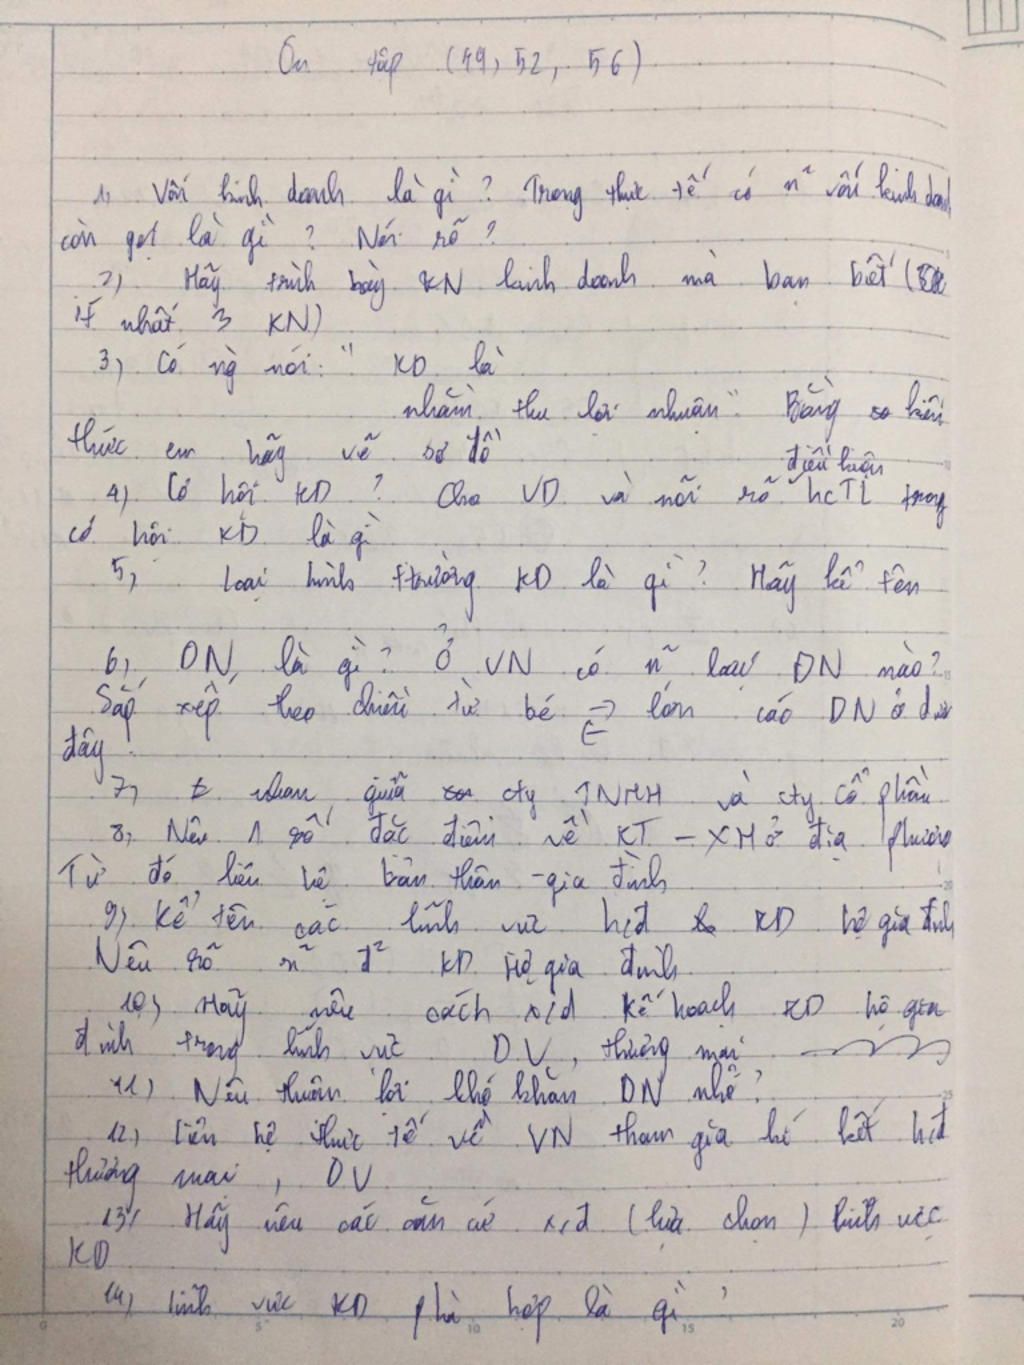 Ôn tập (49, 52, 56)
1, Vốn kinh doanh là gì ? Trong thực tế có n~ vốn kinh doanh
còn gọi là gì ? Nói rõ ?
2) Hãy trình bày KN kinh doanh mà bạn biết (
ít nhất 3 KN)
3) Có ng nói: " KD là
nhằm thu lợi nhuận" Bằng kiến
thức em hãy vẽ sơ đồ
điều kiện
4) Cơ hội KD ? Cho VD và nói rõ hcTL trong
cơ hội KD là gì
5, Loại hình ttrường KD là gì ? Hãy kể tên
6, DN, là gì ? Ở VN có n~ loại DN nào?
Sắp xếp theo chiều từ bé → lớn các DN ở dưới
←
đây
7, nhau giữa cty TNHH và cty cổ phần
8, Nêu 1 số đặc điểm về KT - XH ở địa phương
Từ đó liên hệ bản thân - gia đình
9) Kể tên các lĩnh vực hđ KD hộ gia đình
Nêu rõ n~ đ² KD hộ gia đình
10) Hãy nêu cách x/đ kế hoạch KD hộ gia
đình trong lĩnh vực DV, thương mại
11) Nêu thuận lợi khó khăn DN nhỏ ?
12) Liên hệ thực tế về VN tham gia kí kết hđ
thương mại , DV
13) Hãy nêu các căn cứ x/đ (lựa chọn) lĩnh vực
KD
14) Lĩnh vực KD phù hợp là gì ?